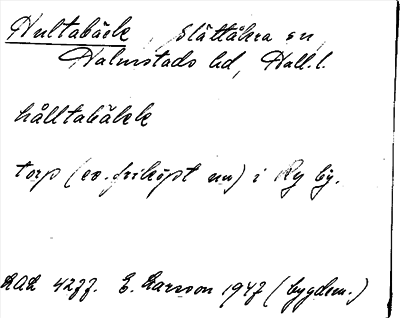 Hultabäck, Slättåkra sn,
Halmstads hd, Hall. l.
hålltabäkk
torp (ev. friköpt nu) i Ry by.
DAL 4277. E. Larsson 1947 (bygdem.)